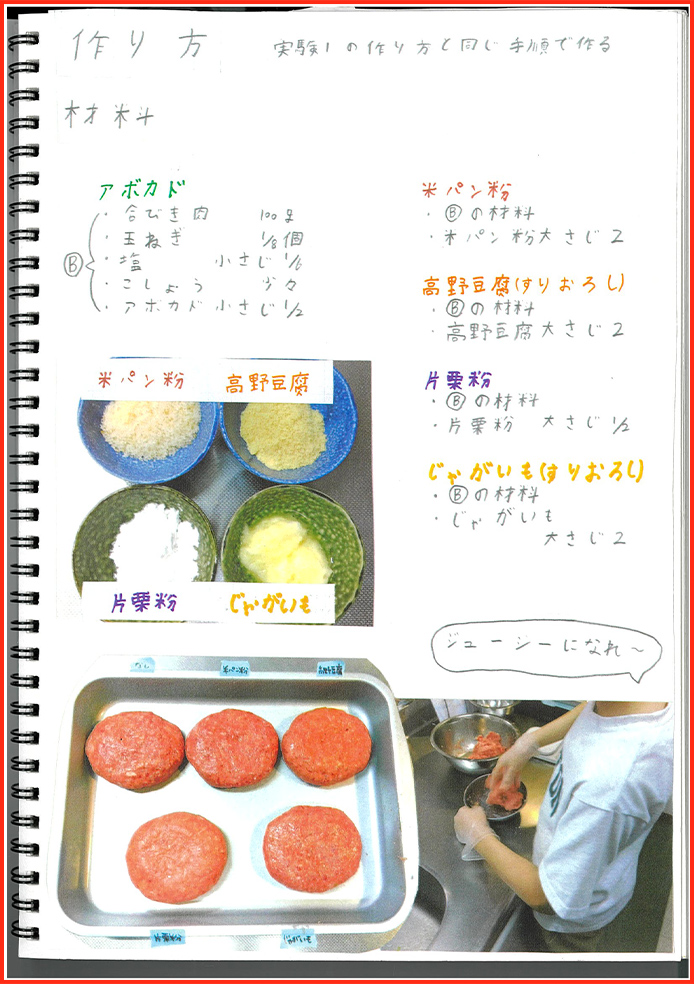 作り方
実験1の作り方と同じ手順で作る
材料
アボカド
・合びき肉 100g
・玉ねぎ 1/8個
・塩 小さじ1/6
・こしょう 少々
・アボカド 小さじ1/2
Ⓑ
米パン粉
・Ⓑの材料
・米パン粉大さじ2
高野豆腐(すりおろし)
・Ⓑの材料
・高野豆腐大さじ2
片栗粉
・Ⓑの材料
・片栗粉 大さじ1/2
じゃがいも(すりおろし)
・Ⓑの材料
・じゃがいも
大さじ2
米パン粉 高野豆腐
片栗粉 じゃがいも
ジューシーになれ〜
なし 米パン粉 高野豆腐
片栗粉 じゃがいも